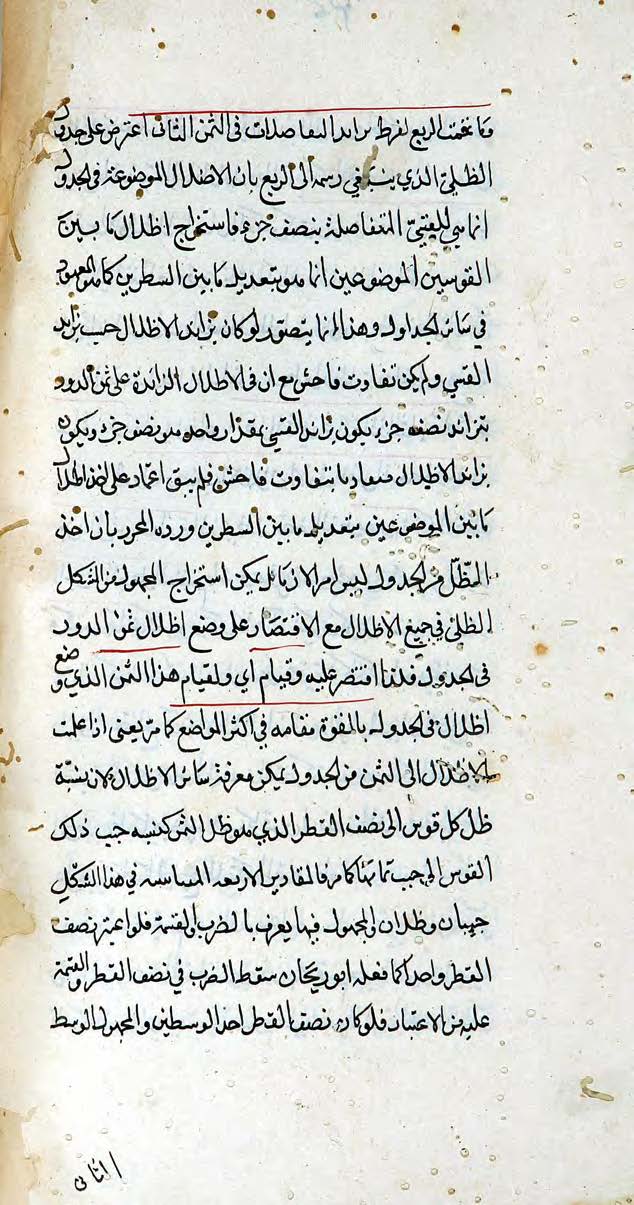 وقانحمت الربع لفرط تزايد التفاضلات في الثمن الثاني اعترض على جدول
الظلي الذي ينبغي رسمه الى الربع بان الاظلال الموضوعة في الجدول
انما هي للقسي المتفاضلة بنصف جزء فاستخراج اظلال ما بين
القوسين الموضوعين انما هو بتعديل ما بين السطرين كما هو المعهود
في سائر الجداول وهذا انما يتصور لو كان تزايد الاظلال حسب تزايد
القسي ولم يكن تفاوت فاحش مع ان في الاظلال الزائدة على ثمن الدور
بتزايد نصف جزء يكون تزايد القسي بمقدار واحد هو نصف جزء ويكون
تزايد الاظلال متفاوت فاحش فلم يبق اعتماد على اخذ اظلال
ما بين الموضوعين بتعديل ما بين السطرين ورده المحرر بان اخذ
الظل من الجدول ليس امرا لازما بل يمكن استخراج المجهول من الشكل
الظلي في جميع الاظلال مع الاقتصار على وضع اظلال ثمن الدور
في الجدول فلذا اقتصر عليه وقيام اي ولقيام هذا الثمن الذي وضع
اظلال في الجدول بالقوة مقامه في اكثر المواضع كما مر يعني اذا علمت
الاظلال الى الثمن من الجدول يمكن معرفة سائر الاظلال لان نسبة
ظل كل قوس الى نصف القطر الذي هو ظل الثمن كنسبة جيب ذلك
القوس الى جيب تمامها كما مر فالمقادير الاربعة المتناسبة في هذا الشكل
جيبان وظلان والمجهول فيها يعرف بالضرب والقسمة فلو اعتبر نصف
القطر واحدا كما فعله ابو ريحان سقط الضرب في نصف القطر والقسمة
عليه من الاعتبار فلو كان نصف القطر احد الوسطين والمجهول الوسط
الثاني